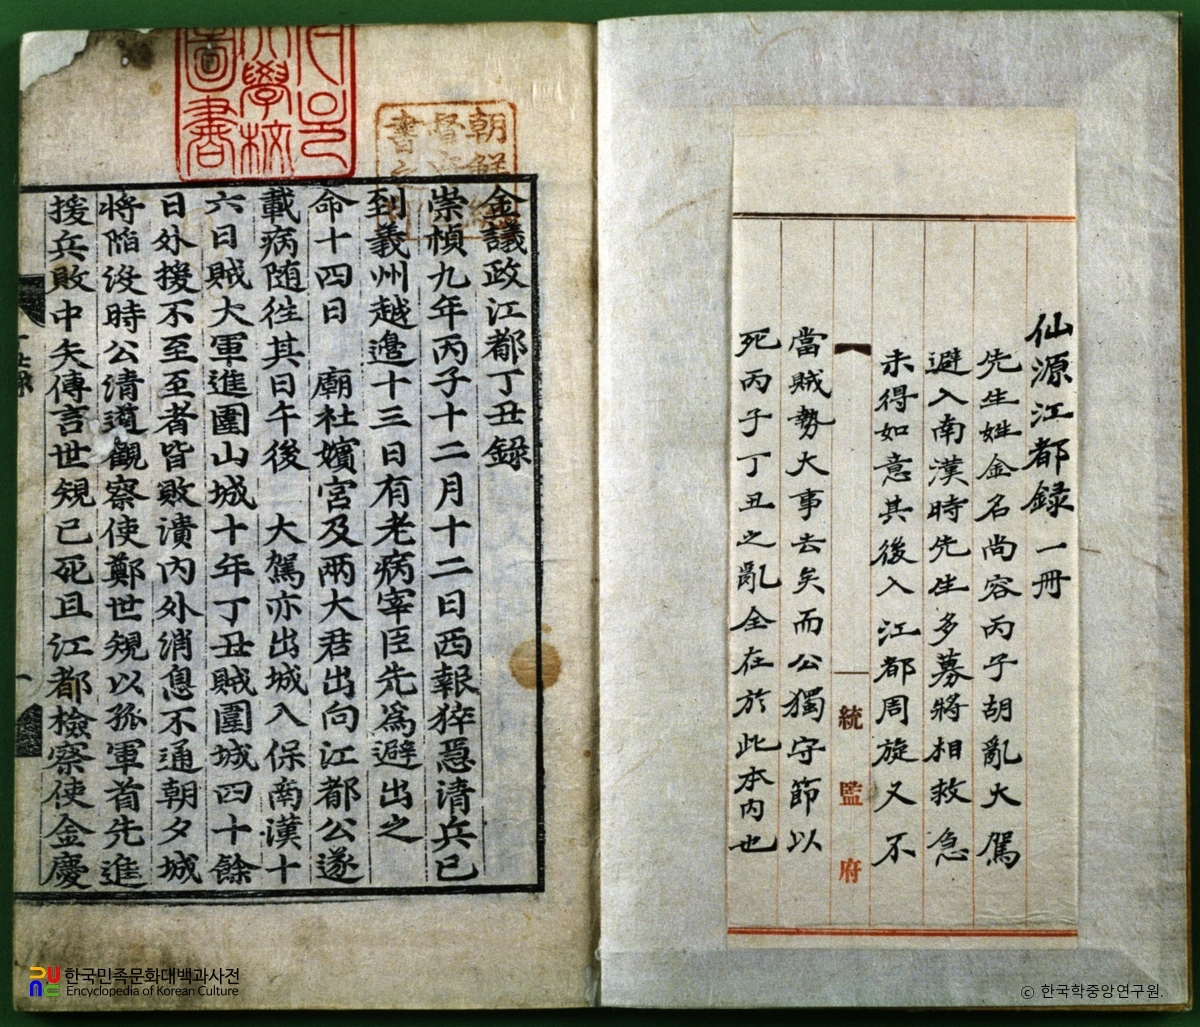 仙源江都録一冊
先生姓金名尚容丙子胡亂大駕
避入南漢時先生多募將相救急
未得如意其後入江都周旋又不
統監府
當賊勢大事去矣而公獨守節以
死丙子丁丑之亂全在於此本內也
金議政江都丁丑録
崇楨九年丙子十二月十二日西報猝急清兵已
到義州越邊十三日有老病宰臣先爲避出之
命十四日 廟社嬪宮及兩大君出向江都公遂
載病随徃其日午後 大駕亦出城入保南漢十
六日賊大軍進圍山城十年丁丑賊圍城四十餘
日外援不至至者皆敗潰內外消息不通朝夕城
將陷没時公清道觀察使鄭世䂓以孤軍首先進
援兵敗中矢傳言世䂓已死且江都檢察使金慶
學校
圖書
朝鮮總
督府圖
書之印
한국민족문화대백과사전
Encyclopedia of Korean Culture
ⓒ 한국학중앙연구원.